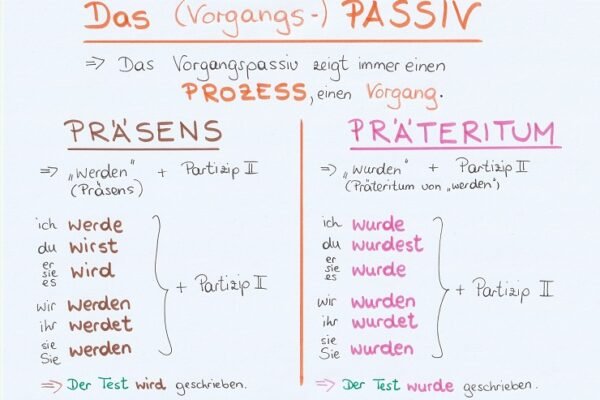 Das (Vorgangs-) PASSIV
⇒ Das Vorgangspassiv zeigt immer einen
PROZESS, einen Vorgang.
PRÄSENS
⇒ „werden" + Partizip II
(Präsens)
ich werde
du wirst
er
sie
es wird
wir werden
ihr werdet
sie
Sie werden
+ Partizip II
⇒ Der Test wird geschrieben.
PRÄTERITUM
⇒ „wurden" + Partizip II
(Präteritum von „werden")
ich wurde
du wurdest
er
sie
es wurde
wir wurden
ihr wurdet
sie
Sie wurden
+ Partizip II
⇒ Der Test wurde geschrieben.